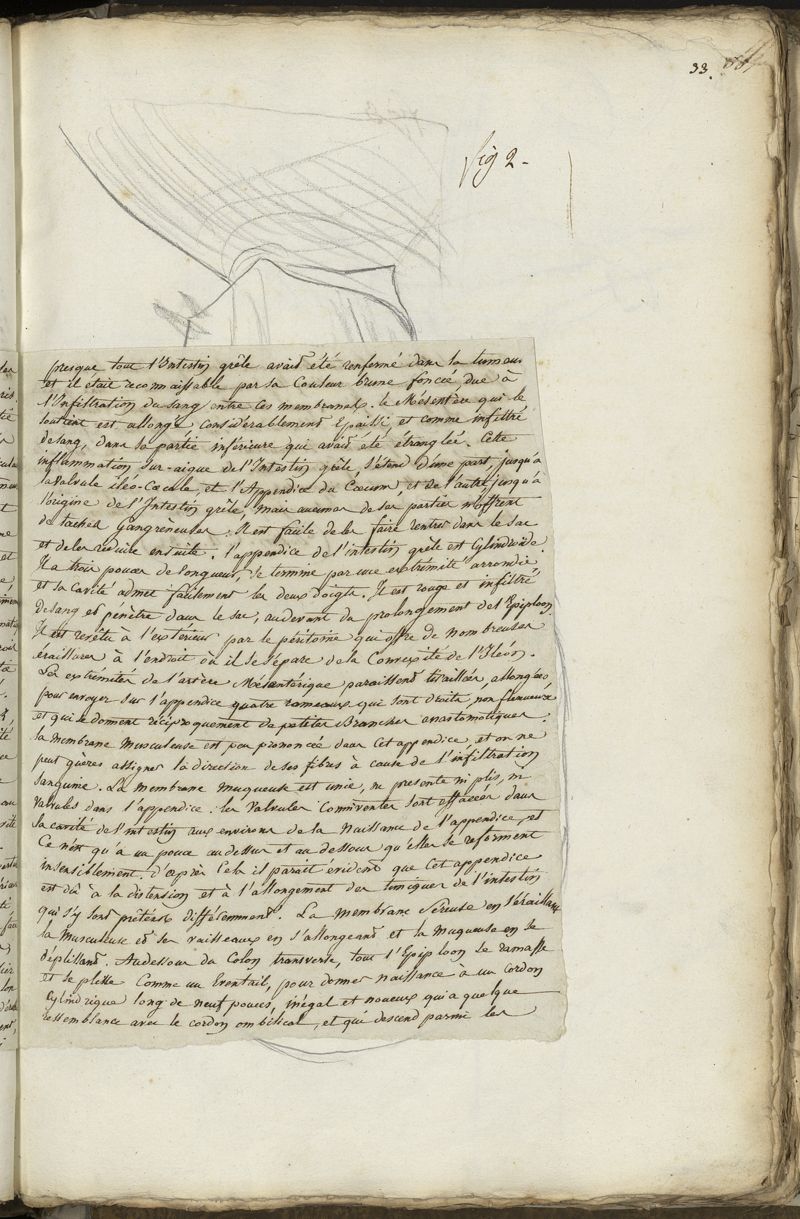 33.
fig 2 -
presque tout l'Intestin grêle avait été renfermé dans la tumeur
et il était reconnaissable par sa Couleur brune foncée due à
l'Infiltration du sang entre ses membranes. le Mésentère qui le
soutient est allongé Considérablement Epaissi, et comme infiltré
de sang, dans sa partie inférieure qui avait été étranglée. Cette
inflammation sur-aigue de l'Intestin grêle, s'étend d'une part, jusqu'à
la Valvule iléo-Cœcale, et l'Appendice du Cœcum, et de l'autre jusqu'à
l'origine de l'Intestin grêle, mais aucune de ses parties n'offrent
de taches gangréneuses. Il est facile de les faire rentrer dans le sac
et de les réduire ensuite. l'appendice de l'intestin grêle est Cylindroïde.
Il a trois pouces de longueur, se termine par une extrémité arrondie
et sa Cavité admet facilement les deux doigts. Il est rouge et infiltré
de sang et pénètre dans le sac, audevant du prolongement de l'Epiploon.
Il est revêtu à l'extérieur par le péritoine qui offre de nombreuses
éraillures à l'endroit où il se sépare de la Convexité de l'Iléon.
Les extrémités de l'artère Mésentérique paraissent tiraillées, allongées
pour envoyer sur l'appendice quatre rameaux qui sont droits, non flexueux
et qui se donnent réciproquement de petites Branches anastomotiques.
la membrane Musculeuse est peu prononcée dans cet appendice, et on ne
peut guères assigner la direction de ses fibres à cause de l'infiltration
sanguine. La membrane muqueuse est unie, ne présente ni plis, ni
Valvules dans l'appendice. les Valvules Conniventes sont effacées dans
la cavité de l'intestin aux environs de la Naissance de l'appendice, et
Ce n'est qu'à un pouce au dessus et au dessous qu'elles se reforment
insensiblement. d'après Cela il parait évident que Cet appendice
est dû à la distension et à l'allongement des tuniques de l'intestin
qui s'y sont prêtées différemment. La membrane Séreuse en s'éraillant
la Musculeuse et ses vaisseaux en s'allongeant et la Muqueuse en se
déplissant. Audessous du Colon transverse, tout l'Epiploon se ramasse
et se plisse Comme un Eventail, pour donner naissance à un Cordon
Cylindrique long de neuf pouces, inégal et noueux qui a quelque
ressemblance avec le cordon ombilical, et qui descend parmi les